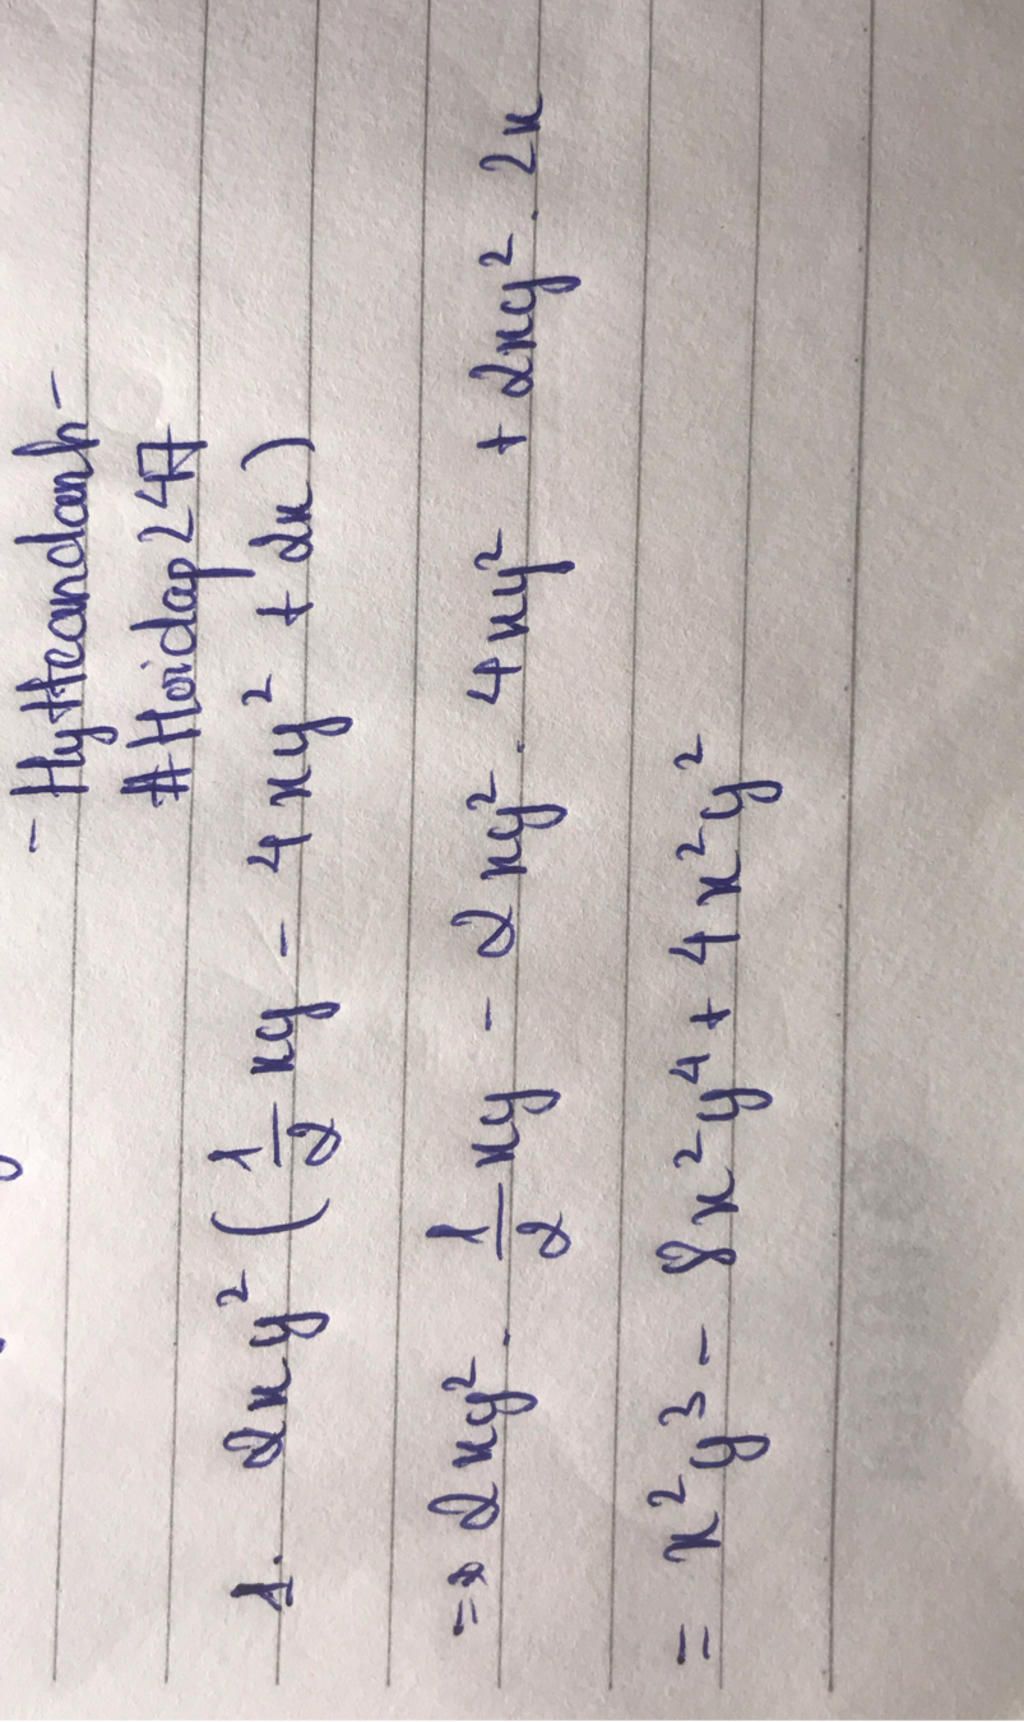 - Hyttcandanh -
#Hoidap247
1. 2xy² (1/2 xy - 4xy² + 2x)
=> 2xy² . 1/2 xy - 2xy² . 4xy² + 2xy² . 2x
= x²y³ - 8x²y⁴ + 4x²y²